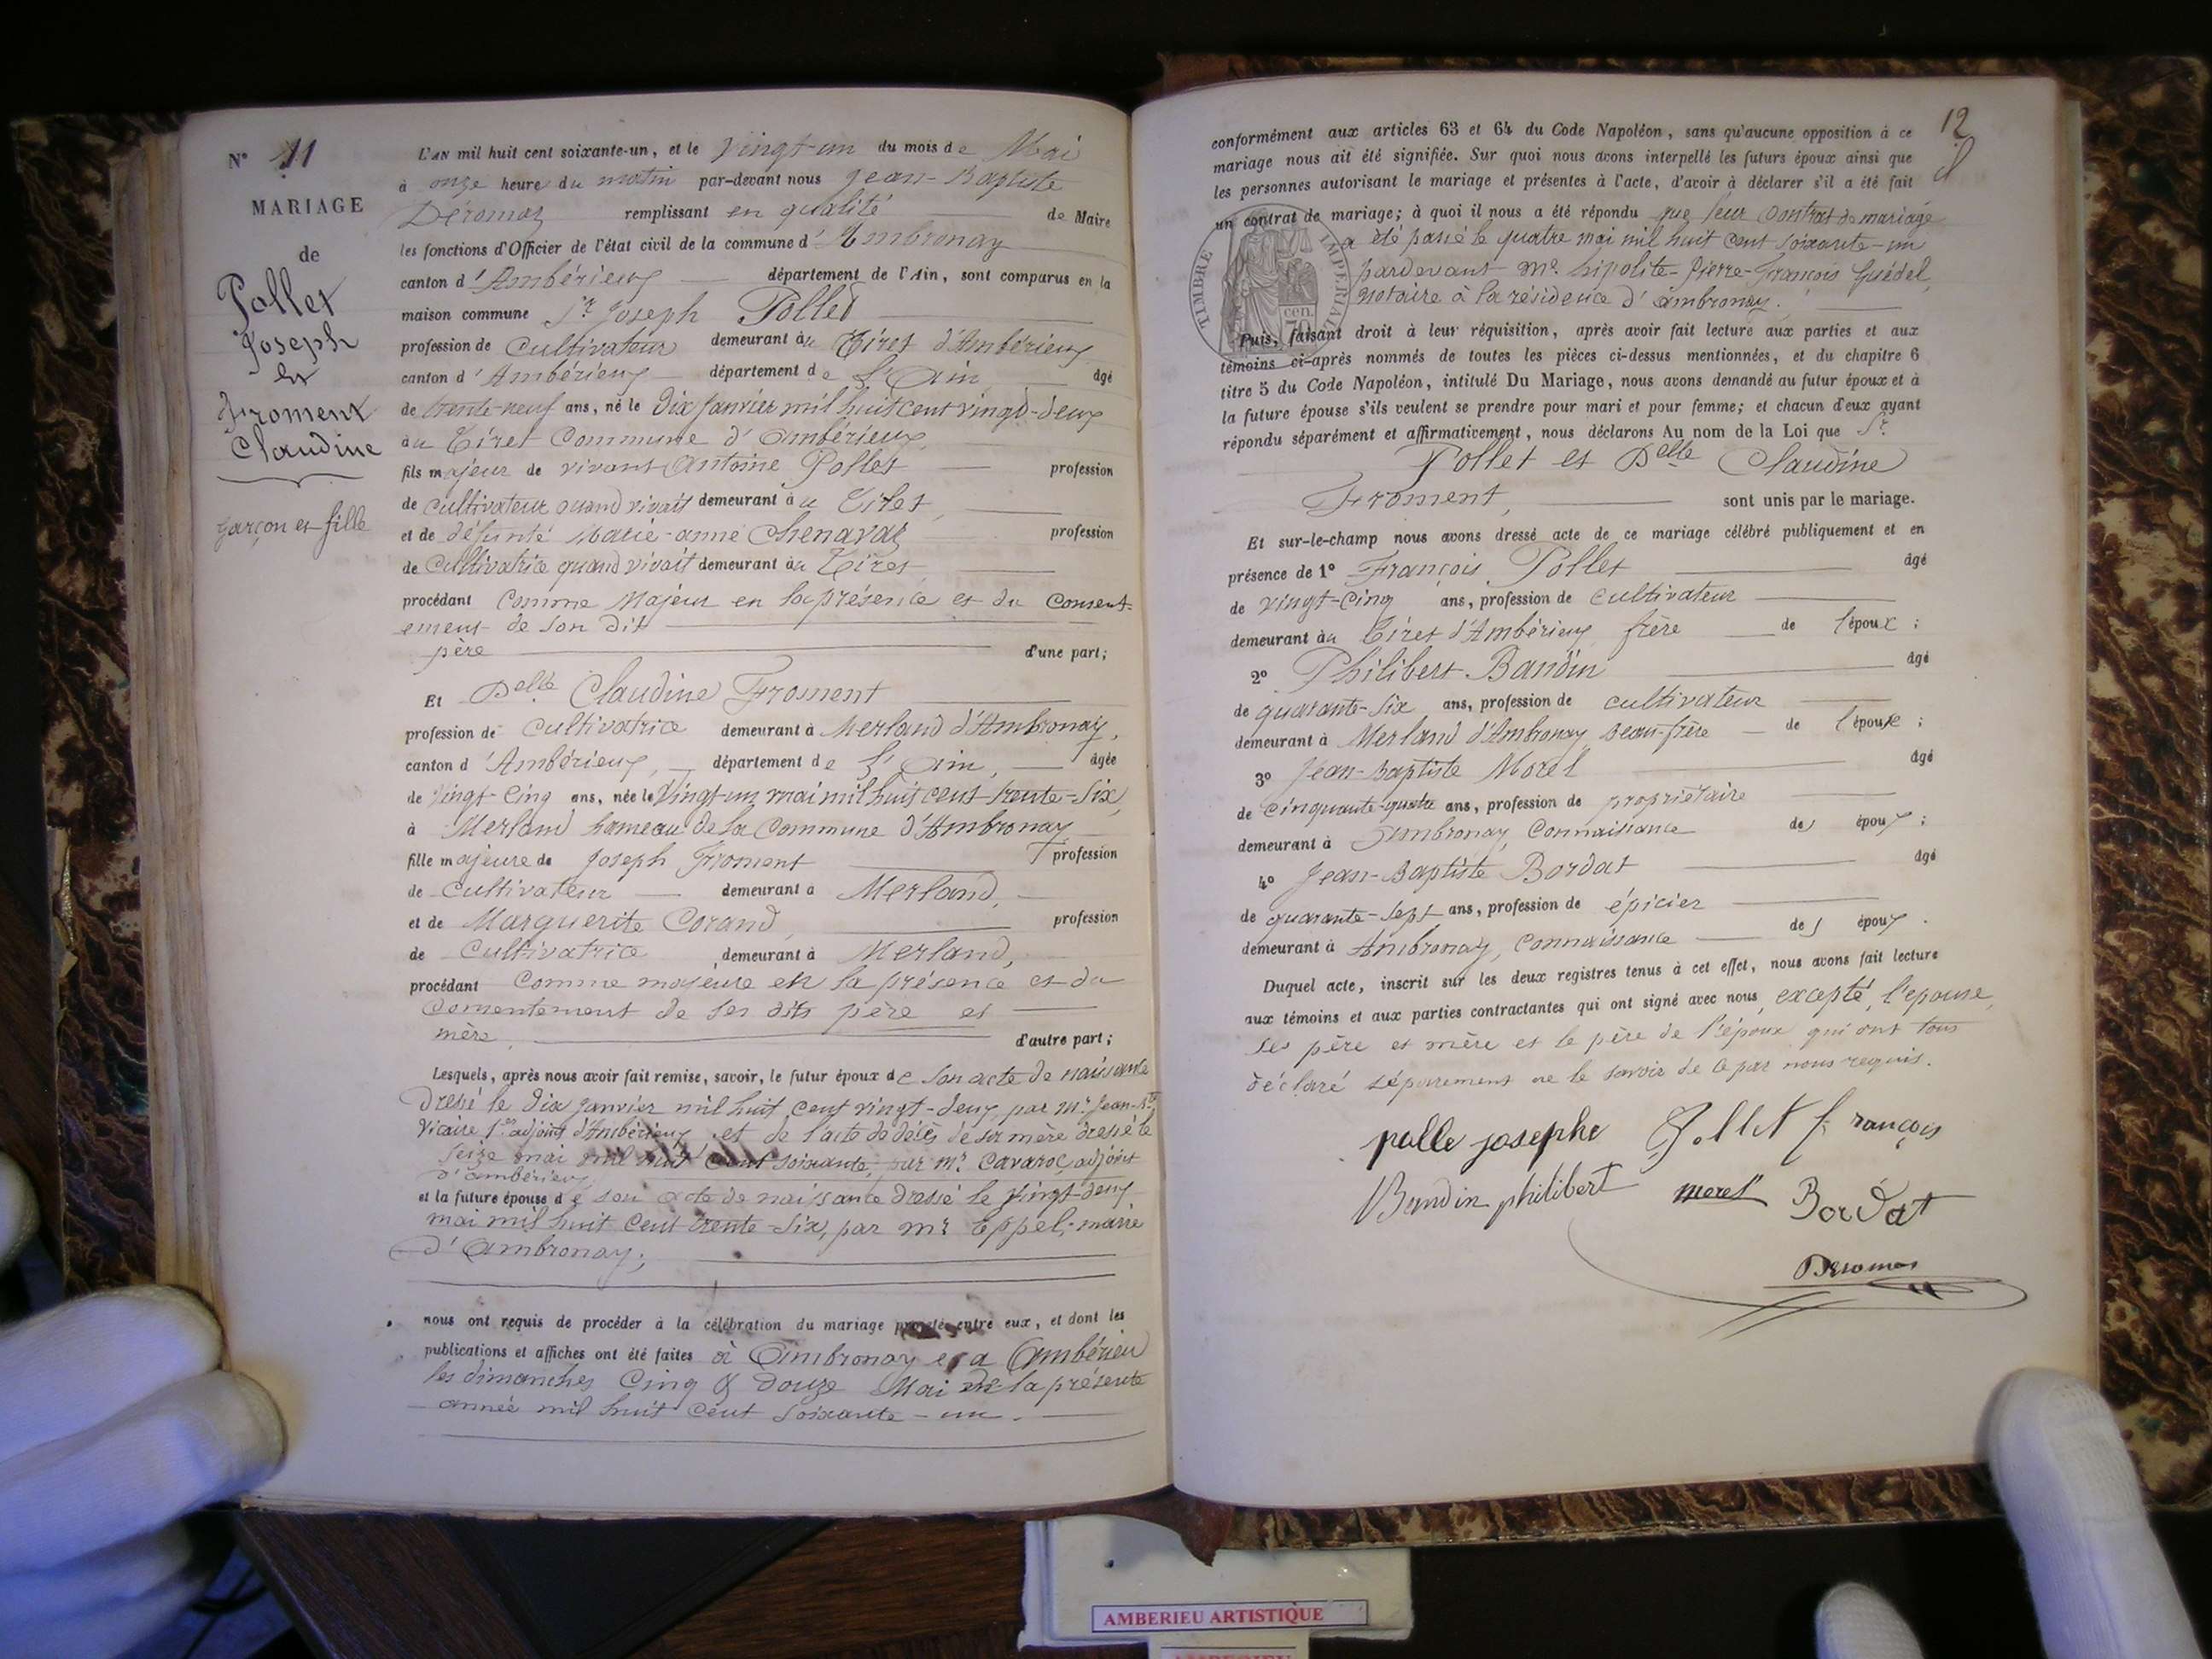 N° 11
MARIAGE
de
Pollet
Joseph
et
Froment
Claudine
garçon et fille
L'AN mil huit cent soixante-un, et le vingt-un du mois de Mai
à onze heure du matin par-devant nous Jean-Baptiste
Déromas remplissant en qualité de Maire
les fonctions d'Officier de l'état civil de la commune d'Ambronay
canton d'Ambérieux département de l'Ain, sont comparus en la
maison commune Sr. Joseph Pollet
profession de Cultivateur demeurant au Tiret d'Ambérieux
canton d'Ambérieux département de l'Ain âgé
de trente-neuf ans, né le Dix Janvier mil huit cent vingt-deux
au Tiret Commune d'Ambérieux
fils majeur de vivant Antoine Pollet profession
de cultivateur quand vivait demeurant au Tiret,
et de défunte Marie-anne Chenavaz profession
de Cultivatrice quand vivait demeurant au Tiret
procédant Comme Majeur en la présence et du Consent-
ement de son dit
père d'une part;
Et Delle Claudine Froment
profession de Cultivatrice demeurant à Merland d'Ambronay,
canton d'Ambérieux, département de l'Ain, âgée
de Vingt-Cinq ans, née le Vingt-un mai mil huit cent trente-six,
à Merland hameau de la Commune d'Ambronay
fille majeure de Joseph Froment profession
de Cultivateur demeurant à Merland,
et de Marguerite Corand, profession
de Cultivatrice demeurant à Merland,
procédant Comme majeure en la présence et du
Consentement de ses dits père et
mère, d'autre part;
Lesquels, après nous avoir fait remise, savoir, le futur époux de son acte de naissance
Dressé le dix Janvier mil huit cent vingt-deux par Mr. Jean-Bte
Vicaire 1er adjoint d'Ambérieux, et de l'acte de décès de sa mère dressé le
seize mai mil huit cent soixante, par Mr. Cavaroc, adjoint
d'ambérieux,
et la future épouse de son acte de naissance dressé le Vingt-deux
mai mil huit cent trente-six, par Mr Eppel, maire
d'Ambronay;
nous ont requis de procéder à la célébration du mariage projeté entre eux, et dont les
publications et affiches ont été faites à Ambronay et a Ambérieu
les dimanches Cinq & Douze Mai de la présente
année mil huit cent soixante-un.
12
conformément aux articles 63 et 64 du Code Napoléon, sans qu'aucune opposition à ce
mariage nous ait été signifiée. Sur quoi nous avons interpellé les futurs époux ainsi que
les personnes autorisant le mariage et présentes à l'acte, d'avoir à déclarer s'il a été fait
un contrat de mariage; à quoi il nous a été répondu que leur Contrat de mariage
a été passé le quatre mai mil huit cent soixante-un
pardevant Me. hipolite-Pierre-François Guédel,
notaire à la résidence d'ambronay.
TIMBRE IMPERIAL
70 cen.
Puis, faisant droit à leur réquisition, après avoir fait lecture aux parties et aux
témoins ci-après nommés de toutes les pièces ci-dessus mentionnées, et du chapitre 6
titre 5 du Code Napoléon, intitulé Du Mariage, nous avons demandé au futur époux et à
la future épouse s'ils veulent se prendre pour mari et pour femme; et chacun d'eux ayant
répondu séparément et affirmativement, nous déclarons Au nom de la Loi que Sr.
Pollet et Delle Claudine
Froment, sont unis par le mariage.
Et sur-le-champ nous avons dressé acte de ce mariage célébré publiquement et en
présence de 1° François Pollet âgé
de vingt-cinq ans, profession de cultivateur
demeurant au Tiret d'Ambérieux frère de l'époux;
2° Philibert Bandin âgé
de quarante-six ans, profession de cultivateur
demeurant à Merland d'Ambronay beau-frère de l'épouse;
3° Jean-Baptiste Morel âgé
de Cinquante-quatre ans, profession de propriétaire
demeurant à Ambronay, Connaissance des époux;
4° Jean-Baptiste Bordat âgé
de quarante-sept ans, profession de épicier
demeurant à Ambronay, Connaissance des époux.
Duquel acte, inscrit sur les deux registres tenus à cet effet, nous avons fait lecture
aux témoins et aux parties contractantes qui ont signé avec nous, excepté, l'epouse,
ses père et mère et le père de l'époux qui ont tous
déclaré séparement ne le savoir de ce par nous requis.
polle josephe Pollet françois
Bandin philibert morel Bordat
Deromas
AMBERIEU ARTISTIQUE